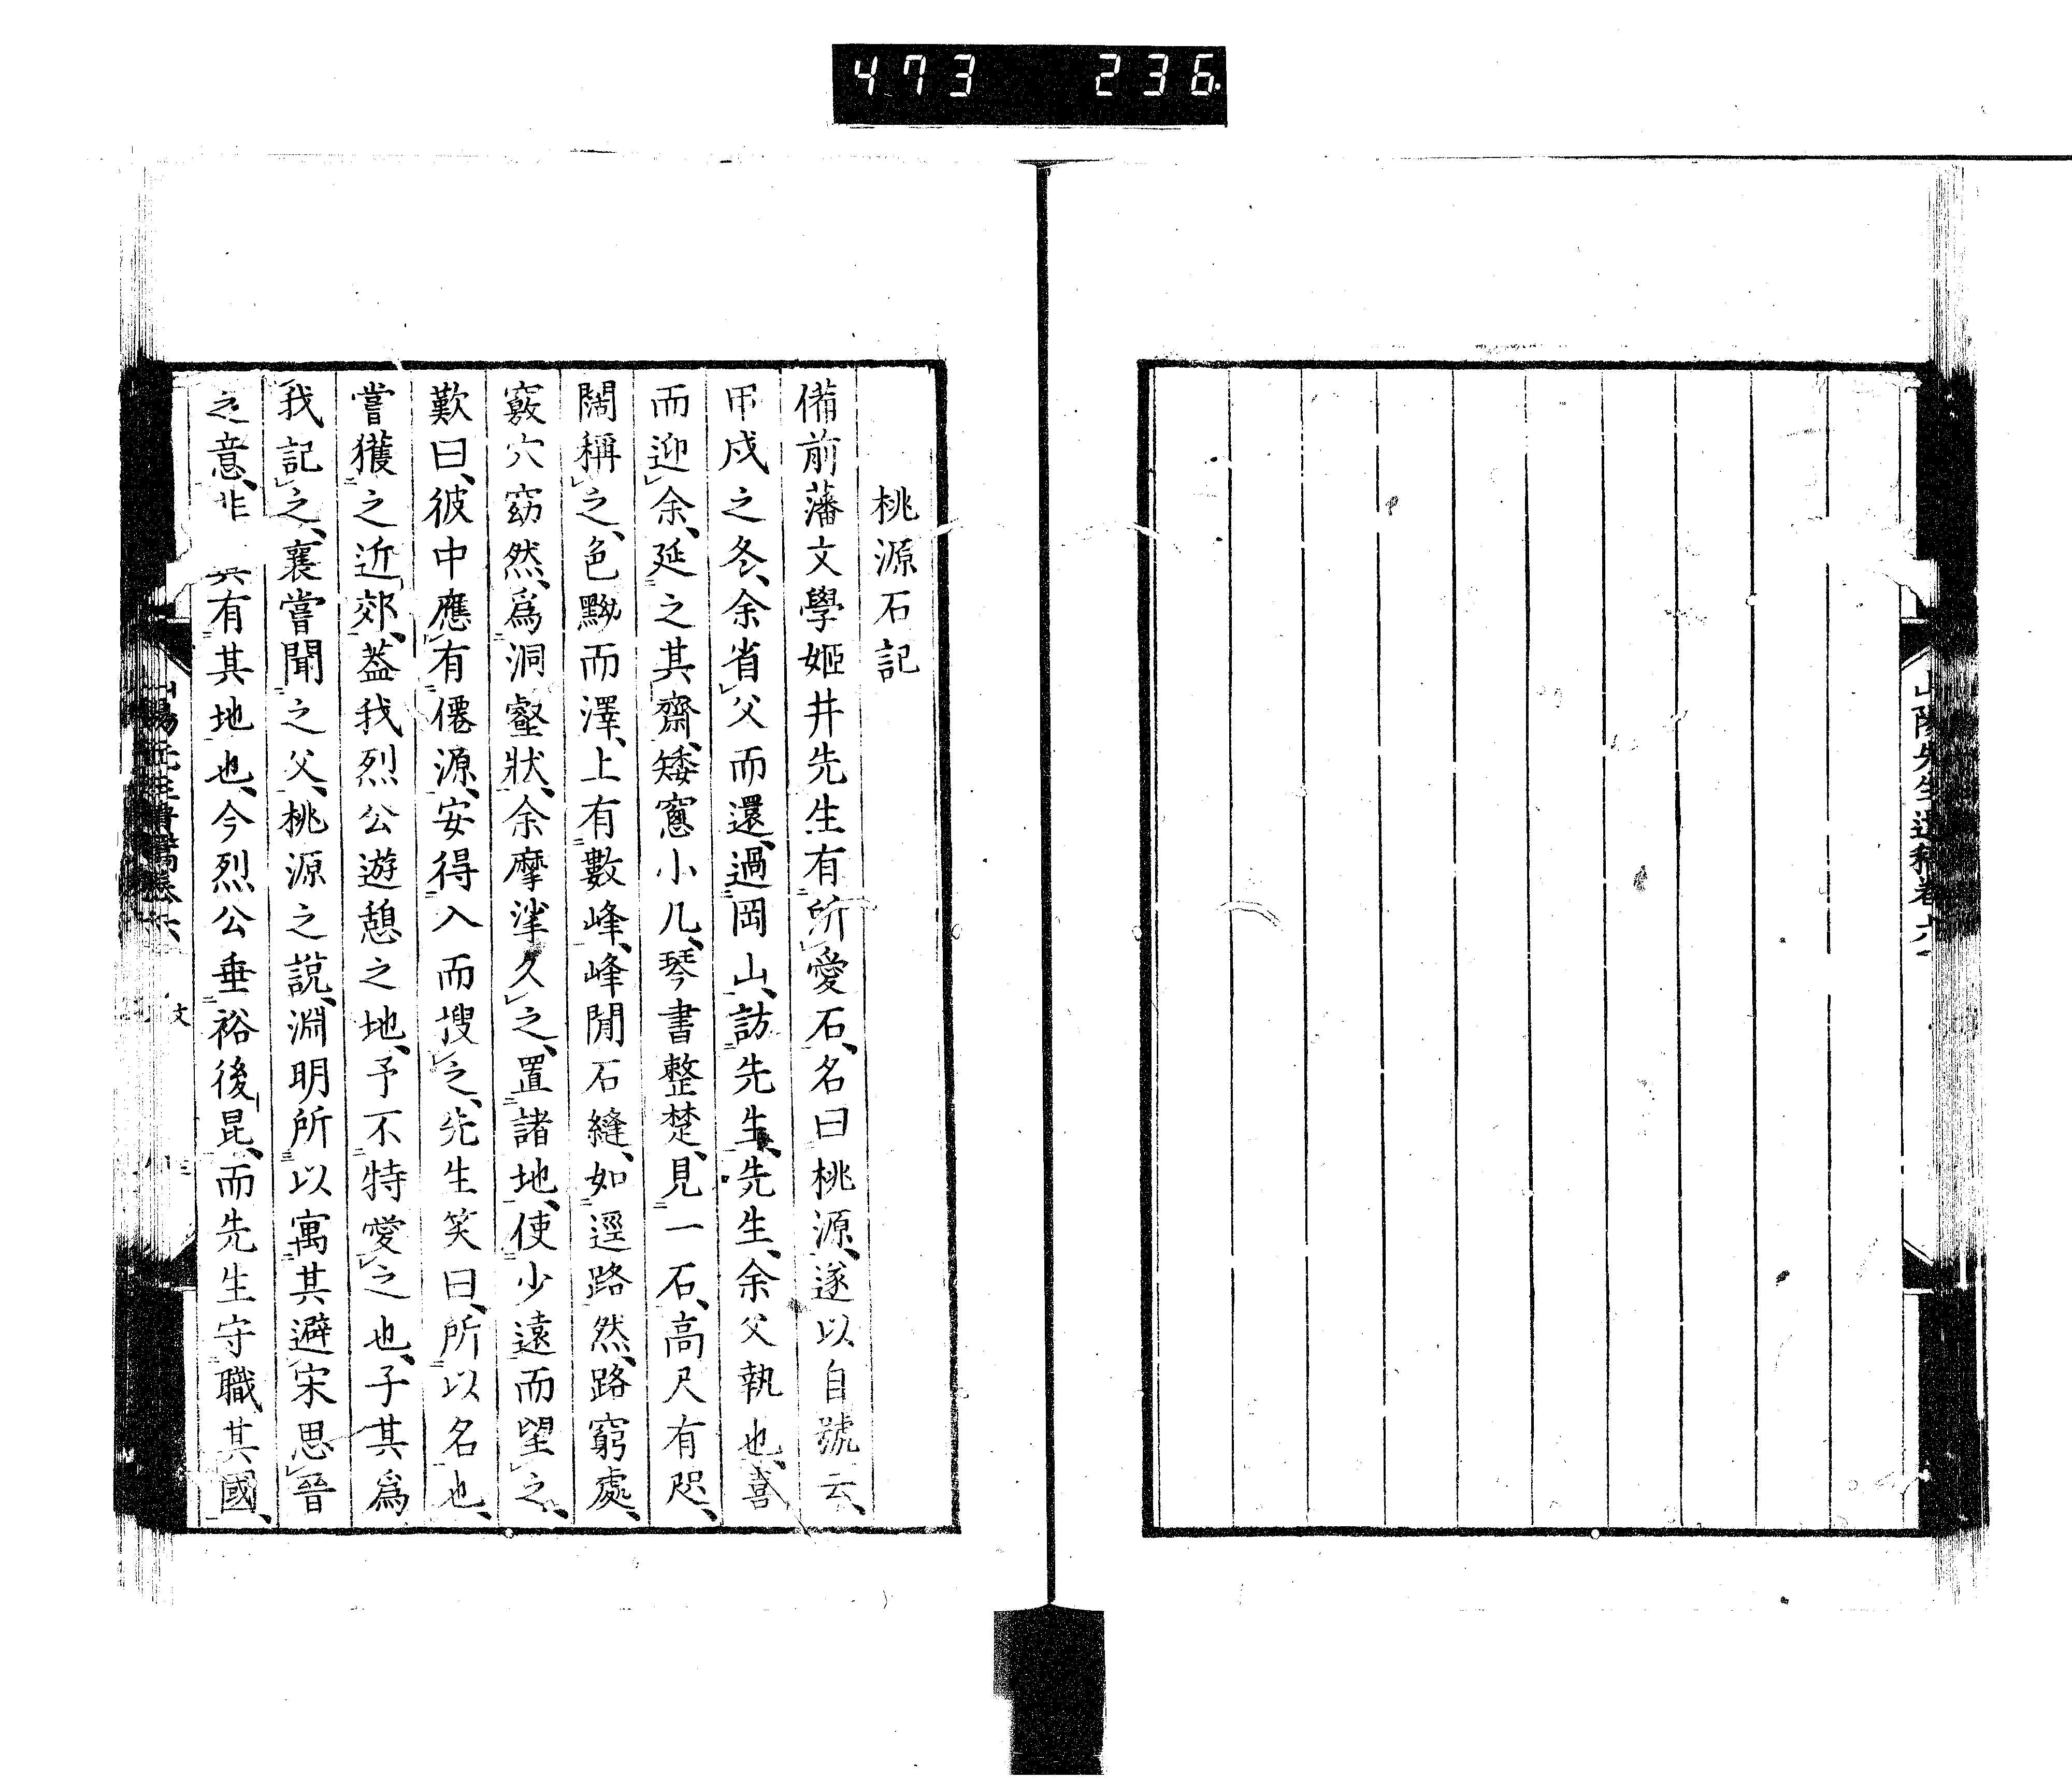 473 236
山陽先生遺稿卷六
桃源石記
備前藩文學姬井先生有所愛石、名曰桃源、遂以自號云、
甲戍之冬、余省父而還、過岡山、訪先生、先生、余父執也、喜
而迎余、延之其齋、矮窻小几、琴書整楚、見一石、高尺有咫、
闊稱之、色黝而澤、上有數峰、峰閒石縫、如逕路然、路窮處、
竅穴窈然、爲洞壑狀、余摩挲久之、置諸地、使少遠而望之、
歎曰、彼中應有僊源、安得入而搜之、先生笑曰、所以名也、
嘗獲之近郊、葢我烈公遊憩之地、予不特愛之也、子其爲
我記之、襄嘗聞之父、桃源之說、淵明所以寓其避宋思晉
之意、非 其有其地也、今烈公垂裕後昆、而先生守職其國、
文